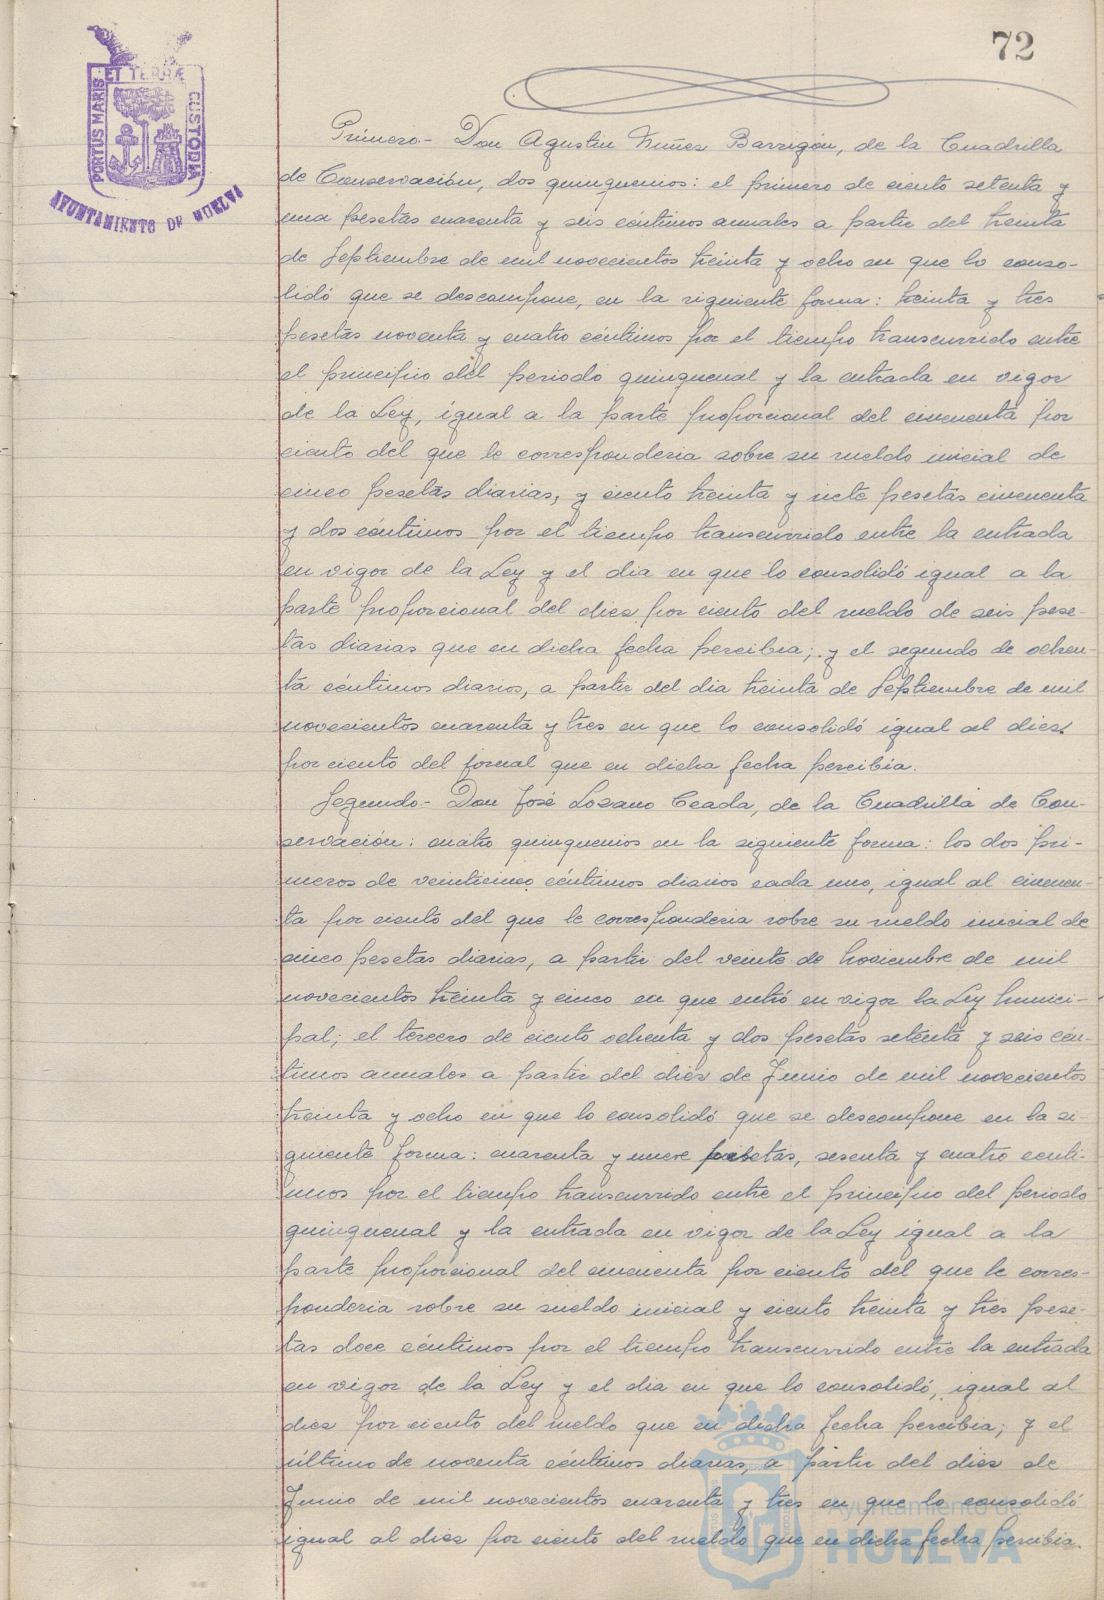 72
PORTUS MARIS ET TERRÆ CUSTODIA
AYUNTAMIENTO DE HUELVA
Primero.- Don Agustin Nuñez Barrigón, de la Cuadrilla
de Conservación, dos quinquenios: el primero de ciento setenta y
una pesetas cuarenta y seis céntimos anuales a partir del treinta
de Septiembre de mil novecientos treinta y ocho en que lo conso-
lidó que se descompone, en la siguiente forma: treinta y tres
pesetas noventa y cuatro céntimos por el tiempo transcurrido entre
el principio del periodo quinquenal y la entrada en vigor
de la Ley, igual a la parte proporcional del cincuenta por
ciento del que le corresponderia sobre su sueldo inicial de
cinco pesetas diarias, y ciento treinta y siete pesetas cincuenta
y dos céntimos por el tiempo transcurrido entre la entrada
en vigor de la Ley y el dia en que lo consolidó igual a la
parte proporcional del diez por ciento del sueldo de seis pese-
tas diarias que en dicha fecha percibia; y el segundo de ochen-
ta céntimos diarios, a partir del dia treinta de Septiembre de mil
novecientos cuarenta y tres en que lo consolidó igual al diez
por ciento del jornal que en dicha fecha percibia.
Segundo.- Don José Lozano Ceada, de la Cuadrilla de Con-
servación: cuatro quinquenios en la siguiente forma: los dos pri-
meros de veinticinco céntimos diarios cada uno, igual al cincuen-
ta por ciento del que le corresponderia sobre su sueldo inicial de
cinco pesetas diarias, a partir del veinte de Noviembre de mil
novecientos treinta y cinco en que entró en vigor la Ley Munici-
pal; el tercero de ciento ochenta y dos pesetas setenta y seis cén-
timos anuales a partir del diez de Junio de mil novecientos
treinta y ocho en que lo consolidó que se descompone en la si-
guiente forma: cuarenta y nueve pesetas, sesenta y cuatro cénti-
mos por el tiempo transcurrido entre el principio del periodo
quinquenal y la entrada en vigor de la Ley igual a la
parte proporcional del cincuenta por ciento del que le corres-
ponderia sobre su sueldo inicial y ciento treinta y tres pese-
tas doce céntimos por el tiempo transcurrido entre la entrada
en vigor de la Ley y el dia en que lo consolidó, igual al
diez por ciento del sueldo que en dicha fecha percibia; y el
último de noventa céntimos diarias, a partir del diez de
Junio de mil novecientos cuarenta y tres en que lo consolidó
igual al diez por ciento del sueldo que en dicha fecha percibia.
Ayuntamiento de
HUELVA